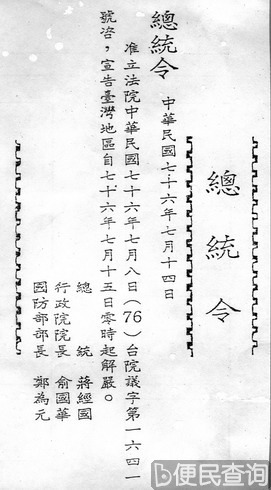 總統令
總統令　中華民國七十六年七月十四日
准立法院中華民國七十六年七月八日（76）台院議字第一六四一
號咨，宣告臺灣地區自七十六年七月十五日零時起解嚴。
總統　蔣經國
行政院院長　俞國華
國防部部長　鄭為元
便民查询